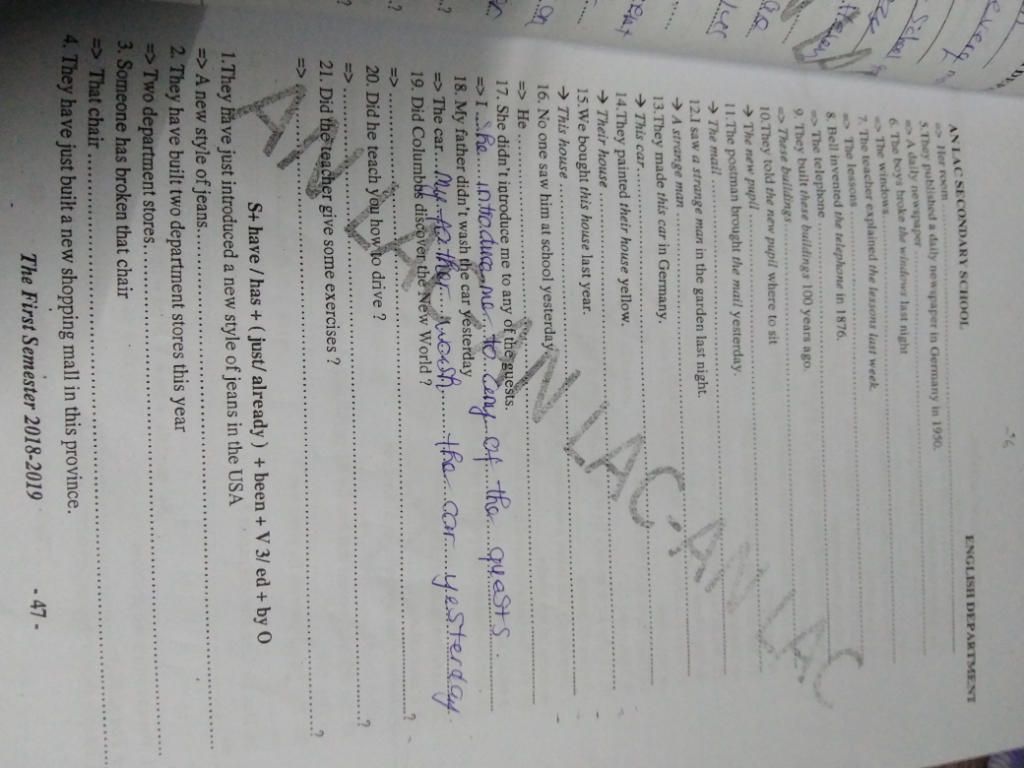 AN LAC SECONDARY SCHOOL ENGLISH DEPARTMENT
=> Her room
5.They published a daily newspaper in Germany in 1950.
=> A daily newspaper
6. The boys broke the window last night
=> The windows
7. The teacher explained the lessons last week.
=> The lessons
8. Bell invented the telephone in 1876.
=> The telephone
9. They built these buildings 100 years ago.
=> These buildings
10.They told the new pupil where to sit
➔ The new pupil
11.The postman brought the mail yesterday.
➔ The mail
12.I saw a strange man in the garden last night.
➔ A strange man
13.They made this car in Germany.
➔ This car
14.They painted their house yellow.
➔ Their house
15.We bought this house last year.
➔ This house
16. No one saw him at school yesterday
=> He
17. She didn't introduce me to any of the guests.
=> I she introduce me to any of the quests.
18. My father didn't wash the car yesterday
=> The car my father wash the car yesterday
19. Did Columbus discover the New World ?
=> ?
20. Did he teach you how to drive ?
=> ?
21. Did the teacher give some exercises ?
=> ?
S+ have / has + ( just/ already ) + been + V 3/ ed + by O
1.They have just introduced a new style of jeans in the USA
=> A new style of jeans
2. They have built two department stores this year
=> Two department stores
3. Someone has broken that chair
=> That chair
4. They have just built a new shopping mall in this province.
The First Semester 2018-2019 - 47 -
AN LAC-AN LAC-AN LAC